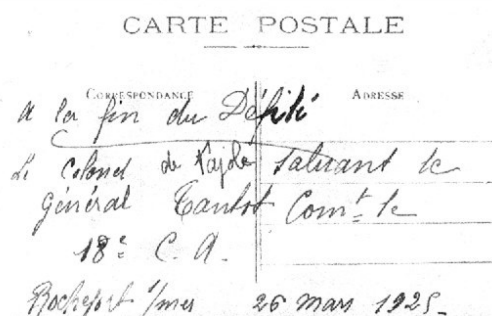 CARTE POSTALE
CORRESPONDANCE
ADRESSE
A la fin du Défilé
Le Colonel de saluant le
général Com.t le
18e C. A.
Rochefort s/mer 26 mars 1925.